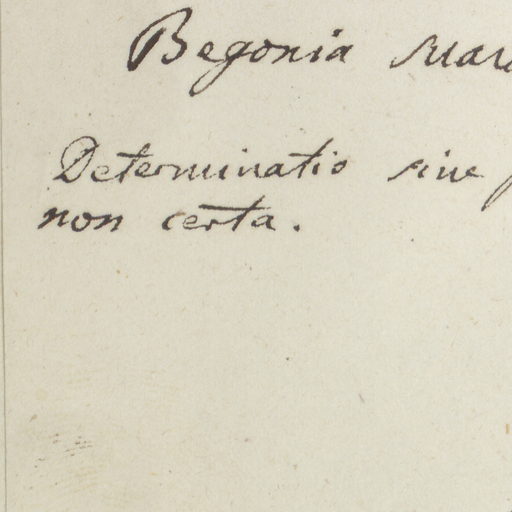 Begonia suav
Determinatio sine
non certa.